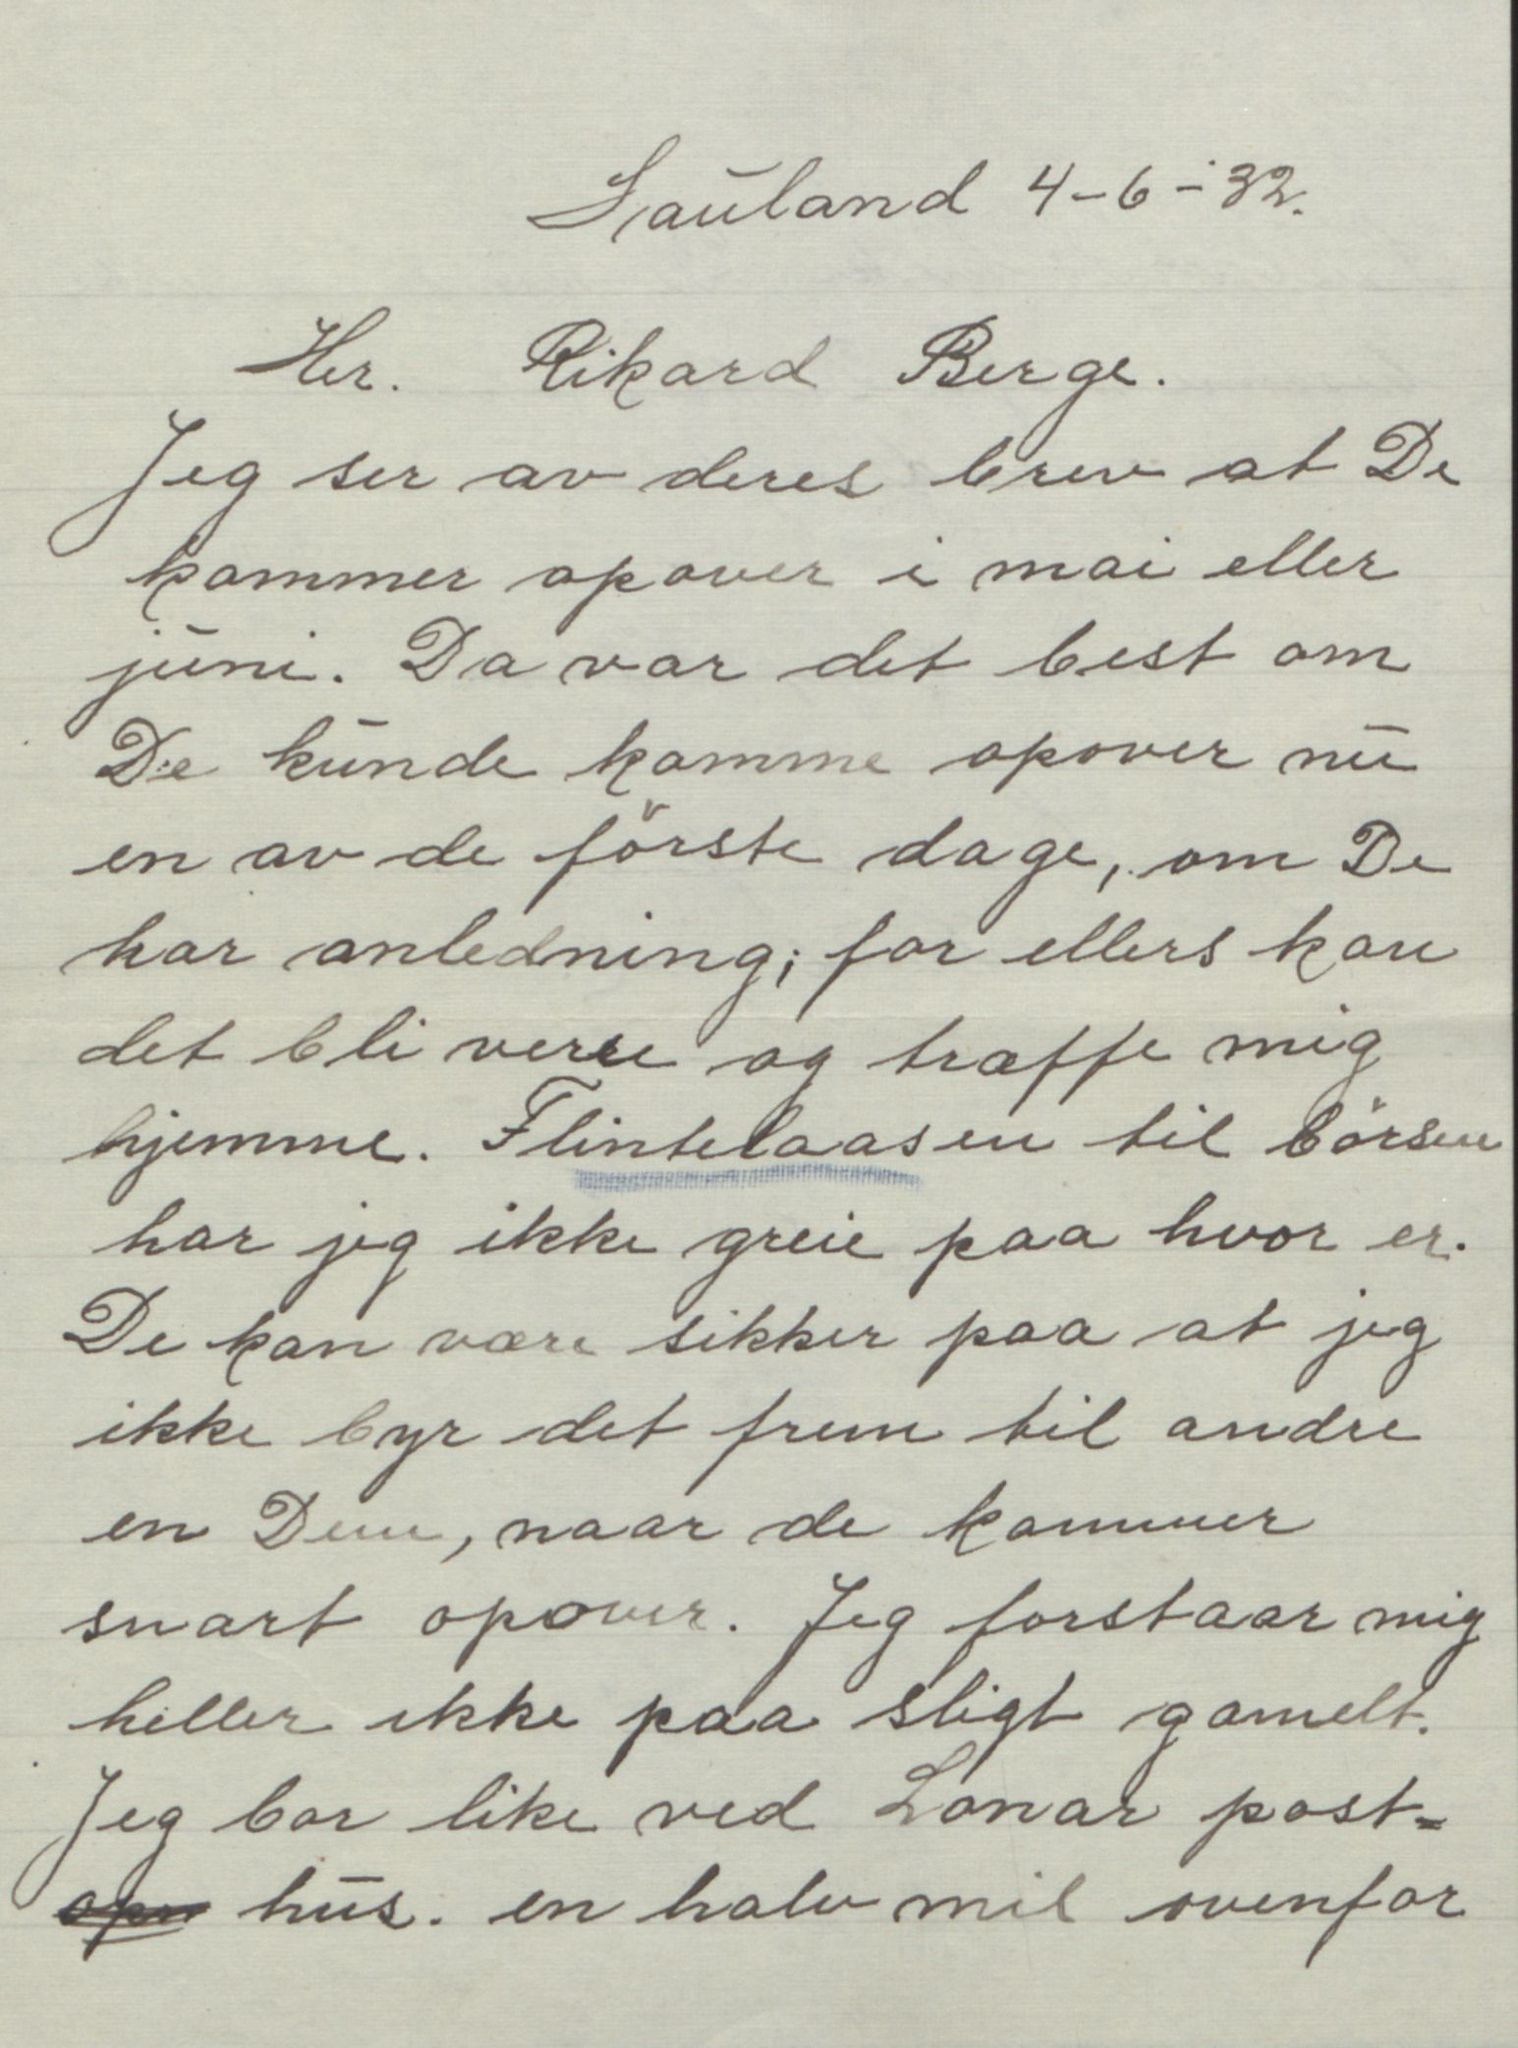 Sauland 4-6-32.
Hr. Rikard Berge.
Jeg ser av deres brev at De
kommer opover i mai eller
juni. Da var det best om
De kunde komme opover nu
en av de förste dage, om De
har anledning; for ellers kan
det bli verre og træffe mig
hjemme. Flintelaasen til börsen
har jeg ikke greie paa hvor er.
De kan være sikker paa at jeg
ikke byr det frem til andre
en Dem, naar de kommer
snart opover. Jeg forstaar mig
heller ikke paa sligt gamelt.
Jeg bor like ved Lonar post-
hus. en halv mil ovenfor